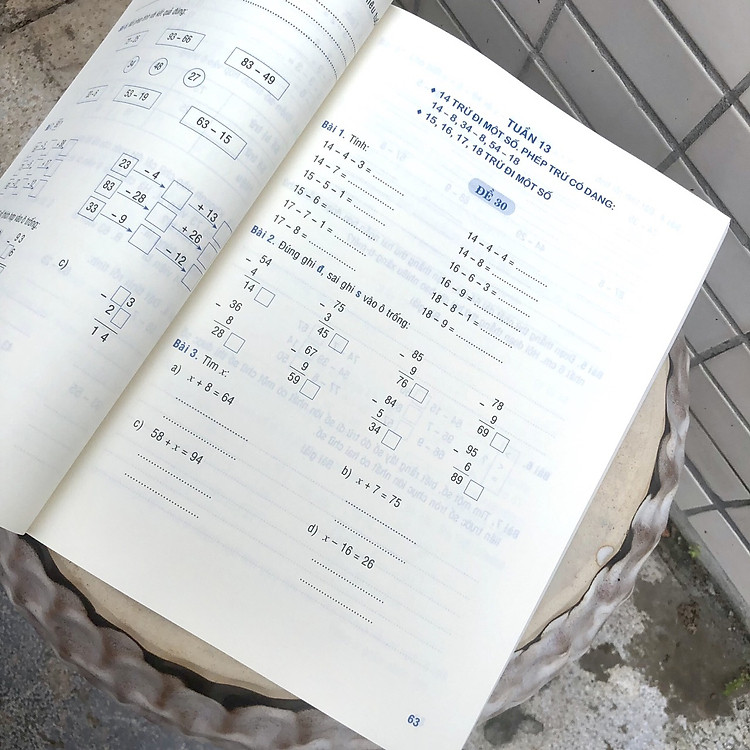 93 – 66
83 – 49
46
27
53 – 19
63 – 15
23 – 4 + 13
83 – 28 + 26
33 – 9 – 12
c)
– 3
2
14
TUẦN 13
♦ 14 TRỪ ĐI MỘT SỐ, PHÉP TRỪ CÓ DẠNG:
14 – 8, 34 – 8, 54 – 18
♦ 15, 16, 17, 18 TRỪ ĐI MỘT SỐ
ĐỀ 30
Bài 1. Tính:
14 – 4 – 3 = ..........
14 – 7 = ..........
15 – 5 – 1 = ..........
15 – 6 = ..........
17 – 7 – 1 = ..........
17 – 8 = ..........
14 – 4 – 4 = ..........
14 – 8 = ..........
16 – 6 – 3 = ..........
16 – 9 = ..........
18 – 8 – 1 = ..........
18 – 9 = ..........
Bài 2. Đúng ghi đ, sai ghi s vào ô trống:
– 54
4
14
– 75
3
45
– 85
9
76
– 78
9
69
– 36
8
28
– 67
9
59
– 84
5
34
– 95
6
89
Bài 3. Tìm x:
a) x + 8 = 64
b) x + 7 = 75
c) 58 + x = 94
d) x – 16 = 26
63